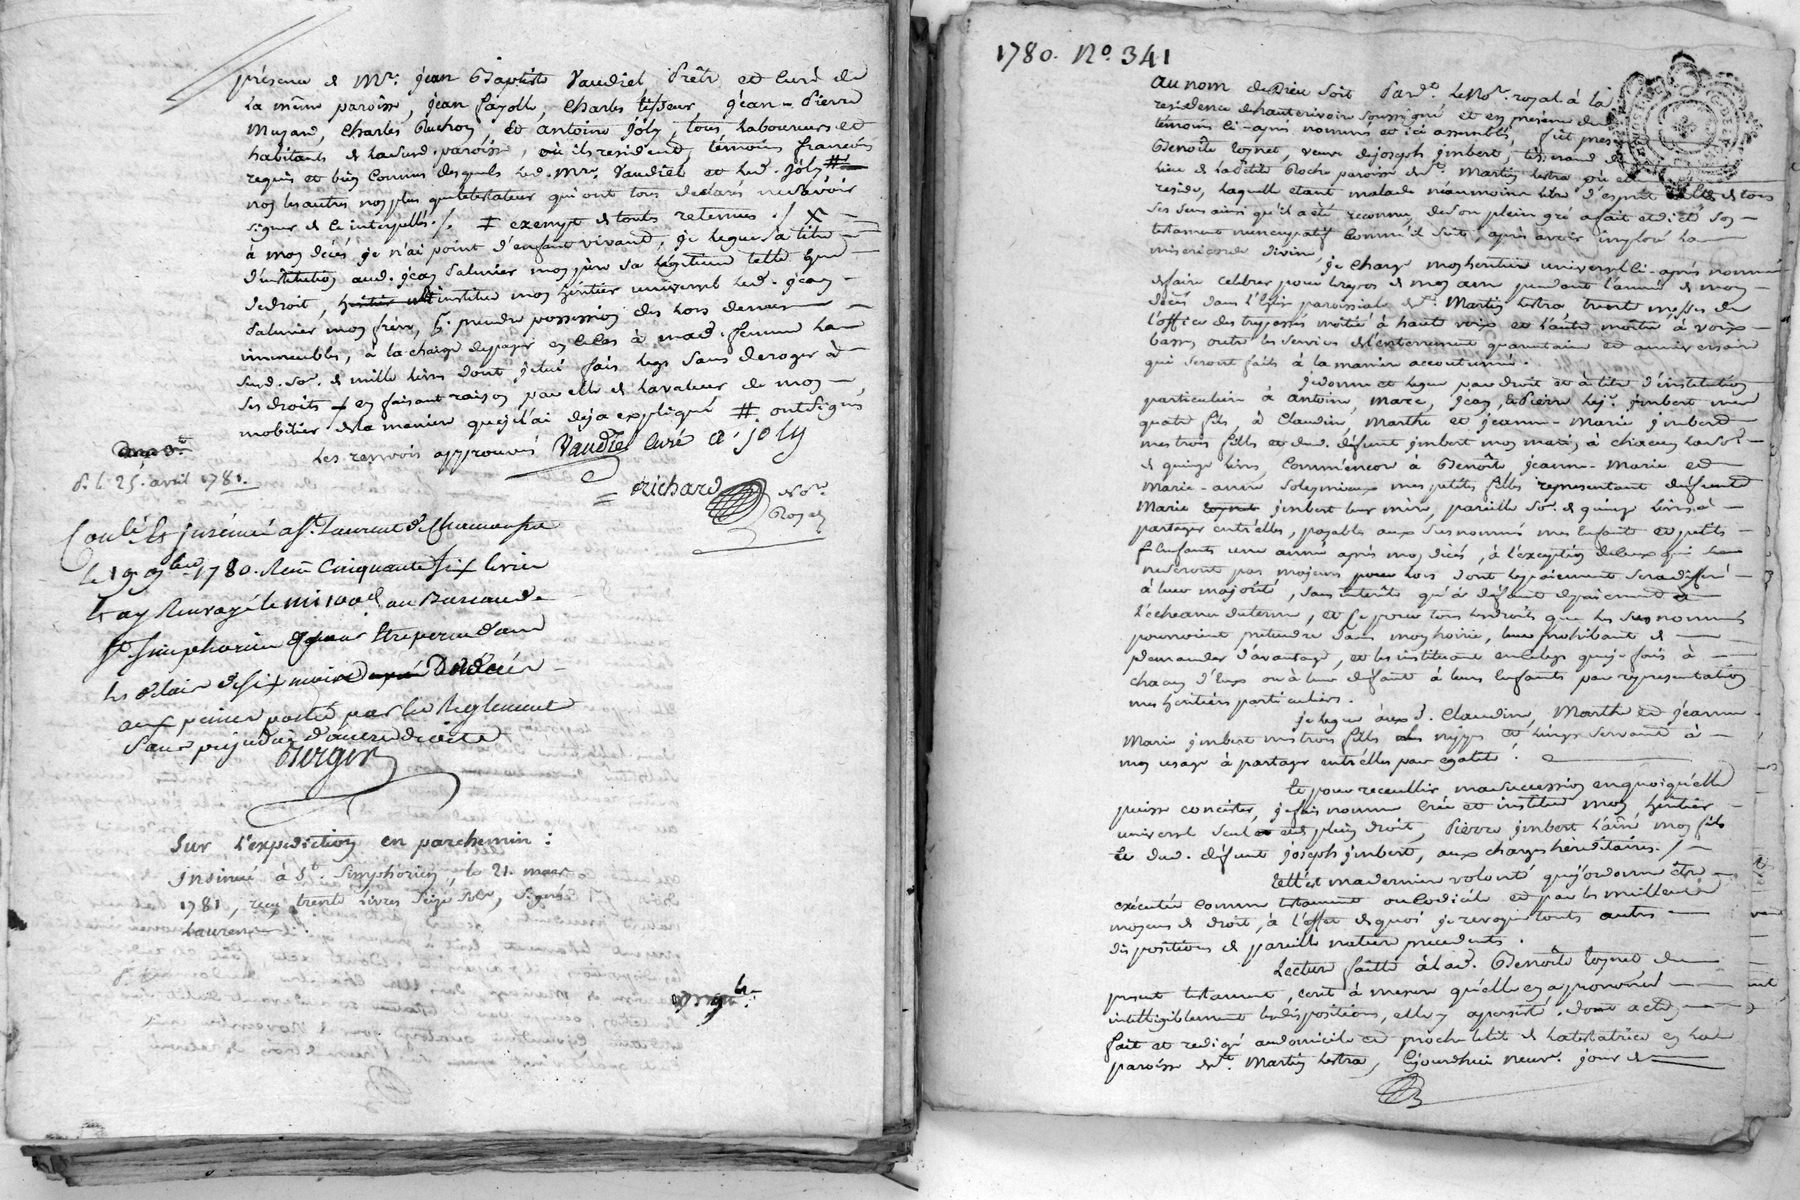 présence de Mre. jean Baptiste Vaudiel Prêtre et Curé de
la même paroisse, jean fayolle, Charles tisseur, jean-Pierre
Muzard, Charles Buchon, et antoine joly, tous laboureurs et
habitants de lasusd. paroisse, où ils resident, témoins
requis et bien connus desquels led. Mre. Vaudiel et led. joly #
non les autres non plus que le testateur qui ont tous declaré ne savoir
signer de ce interpellés ./. ‡ exempt de toute retenue ./. X
à mon décès je n'ai point d'enfant vivant, je legue à titre
d'institution aud. jean Palunier mon père sa légitime telle que
de droit, institue mon héritier universel led. jean
Palunier mon frère, pr. prendre possession dès lors de mes
immeubles, à la charge de payer en icelles à mad. femme la
susd. so. de mille livres dont je lui fais legs sans deroger à
ses droits en faisant raison par elle de la valeur de mon
mobilier de la manière que je l'ai déja expliqué # ont signés
les renvois approuvés Vaudiel curé a. joly
richard Nore.
Royal
P. le 25. avril 1781.
Contlé et insinué à St. Laurent de Chamousset
le 19 9bre 1780. Reçu Cinquante six livres
et ay renvoyé le mi 100e au Bureau de
St. Simphorien
les delais de six mois
aux peines portées par les Reglement
Sans prejudice d'autre droits
Berger
Sur l'expedition en parchemin :
Insinué à St. Simphorien, le 21. mars
1781, reçu trente livres seize sols, signé
Laurenson
1780. No. 341
au nom de Dieu soit Pardt. le Nore. royal à la
residence de hauterivoire soussigné et en presence des
témoins ci-après nommés et ici assemblés, fut presente
Benoîte Coynet, veuve de joseph jmbert, tisserand du
lieu de la Petite Roche paroisse de St. Martin lestra où elle
reside, laquelle etant malade néanmoins libre d'esprit et de tous
ses sens ainsi qu'il a été reconnu, de son plein gré a fait et dicté son
testament nuncupatif comme il suit, après avoir imploré la
misericorde divine,
je charge mon héritier universel ci-après nommé
de faire celebrer pour le repos de mon ame pendant l'année de mon
décès dans l'Eglise paroissiale de St. Martin lestra trente messes de
l'office des trepassés moitié à haute voix et l'autre moitié à voix
basse, outre les services de l'enterrement quarantaine et anniversaire
qui seront faits à la manière accoutumée.
je donne et legue par droit et à titre d'institution
particulière à antoine, Marc, jean, et Pierre lejne. jmbert mes
quatre fils, à Claudine, Marthe et jeanne-Marie jmbert
mes trois filles et dud. défunt jmbert mon mari, à chacun la so.
de quinze livres, comme encore à Benoîte, jeanne-Marie et
Marie-anne Soleymieux mes petites filles representant défunte
Marie jmbert leur mère, pareille so. de quinze livres à
partager entr'elles, payable aux susnommés mes Enfants et petits
Enfants une année après mon décès, à l'exception de ceux qui
ne seront pas majeurs pour lors dont le paiement sera differé
à leur majorité, sans interêts qu'à défaut de paiement à
l'echeance du terme, et ce pour tous les droits que les susnommés
pourroient prétendre dans mon hoirie, leur prohibant de
demander d'avantage, et les instituant en ce legs que je fais à
chacun d'eux ou à leur défaut à leurs Enfants par representation
mes héritiers particuliers.
je legue aux d. Claudine, Marthe et jeanne-
Marie jmbert mes trois filles mes nippes et linges servant à
mon usage à partager entr'elles par egalité.
Et pour recueillir ma succession en quoi qu'elle
puisse concister, je fais nomme crée et institue mon héritier
universel seul et de plein droit, Pierre jmbert l'aîné mon fils
et dud. défunt joseph jmbert, aux charges héréditaires. /.
telle est ma derniere volonté que j'ordonne être
exécutée comme testament ou codicile et par les meilleurs
moyens de droit, à l'effet de quoi je revoque toutes autres
dispositions de pareille nature precedentes.
Lecture faitte à lad. Benoîte Coynet du
present testament, ecrit à mesure qu'elle en a prononcé
intelligiblement les dispositions, elle y a persisté. dont acte,
fait et redigé au domicile et proche le lit de la testatrice en lad.
paroisse de St. Martin lestra, Cejourdhui neuve. jour de